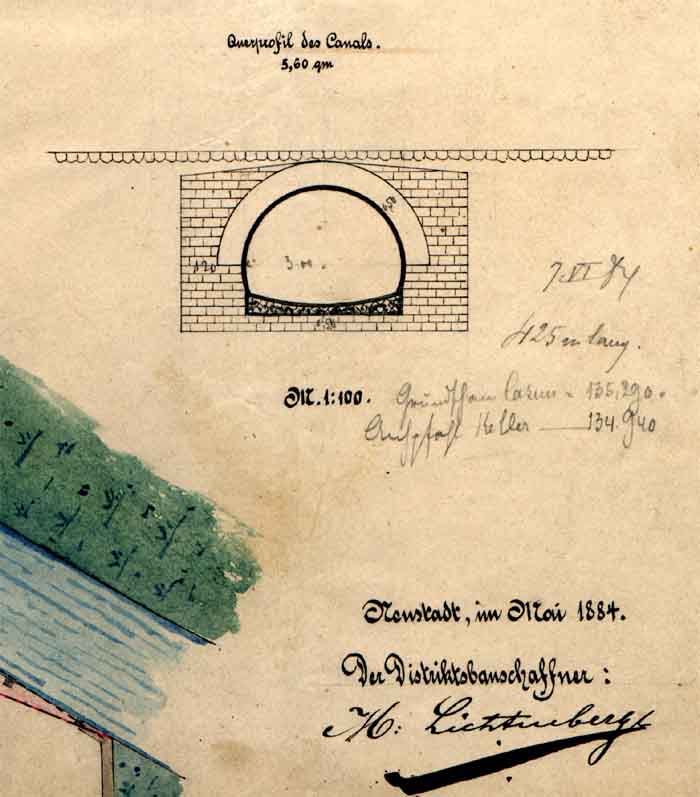 Querprofil des Canals.
5,60 qm
0,50
1,20
3.00
0,50
7. VI 84
425 m lang.
M. 1:100.
135,290.
Keller 134.940
Neustadt, im Mai 1884.
Der Distriktsbauschaffner:
M: Lichtenberg